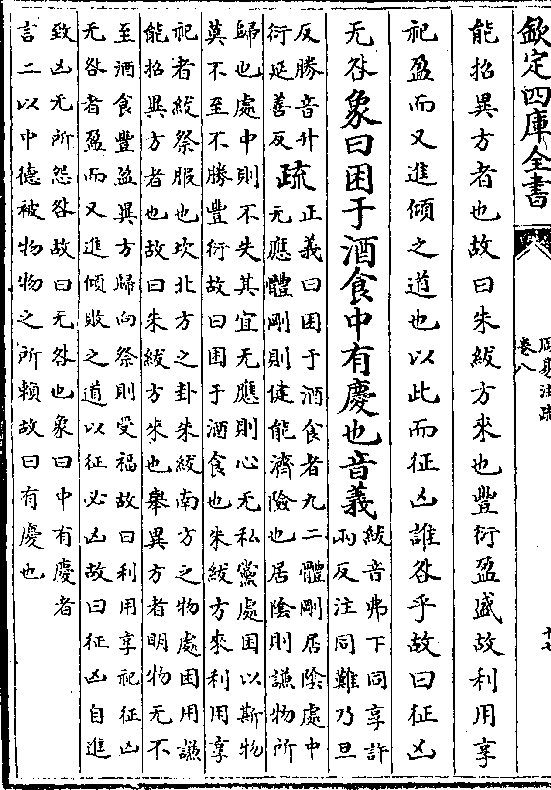 欽定四庫全書
周易注疏
卷八
十七
能招異方者也故曰朱紱方來也豐衍盈盛故利用享
祀盈而又進傾之道也以此而征凶誰咎乎故曰征凶
无咎象曰困于酒食中有慶也音義紱音弗下同享許
兩反注同難乃旦
反勝音升
衍延善反
疏
正義曰困于酒食者九二體剛居陰處中
无應體剛則健能濟險也居陰則謙物所
歸也處中則不失其宜无應則心无私黨處困以斯物
莫不至不勝豐衍故曰困于酒食也朱紱方來利用享
祀者紱祭服也坎北方之卦朱紱南方之物處困用謙
能招異方者也故曰朱紱方來也舉異方者明物无不
至酒食豐盈異方歸向祭則受福故曰利用享祀征凶
无咎者盈而又進傾敗之道以征必凶故曰征凶自進
致凶无所怨咎故曰无咎也象曰中有慶者
言二以中德被物物之所賴故曰有慶也